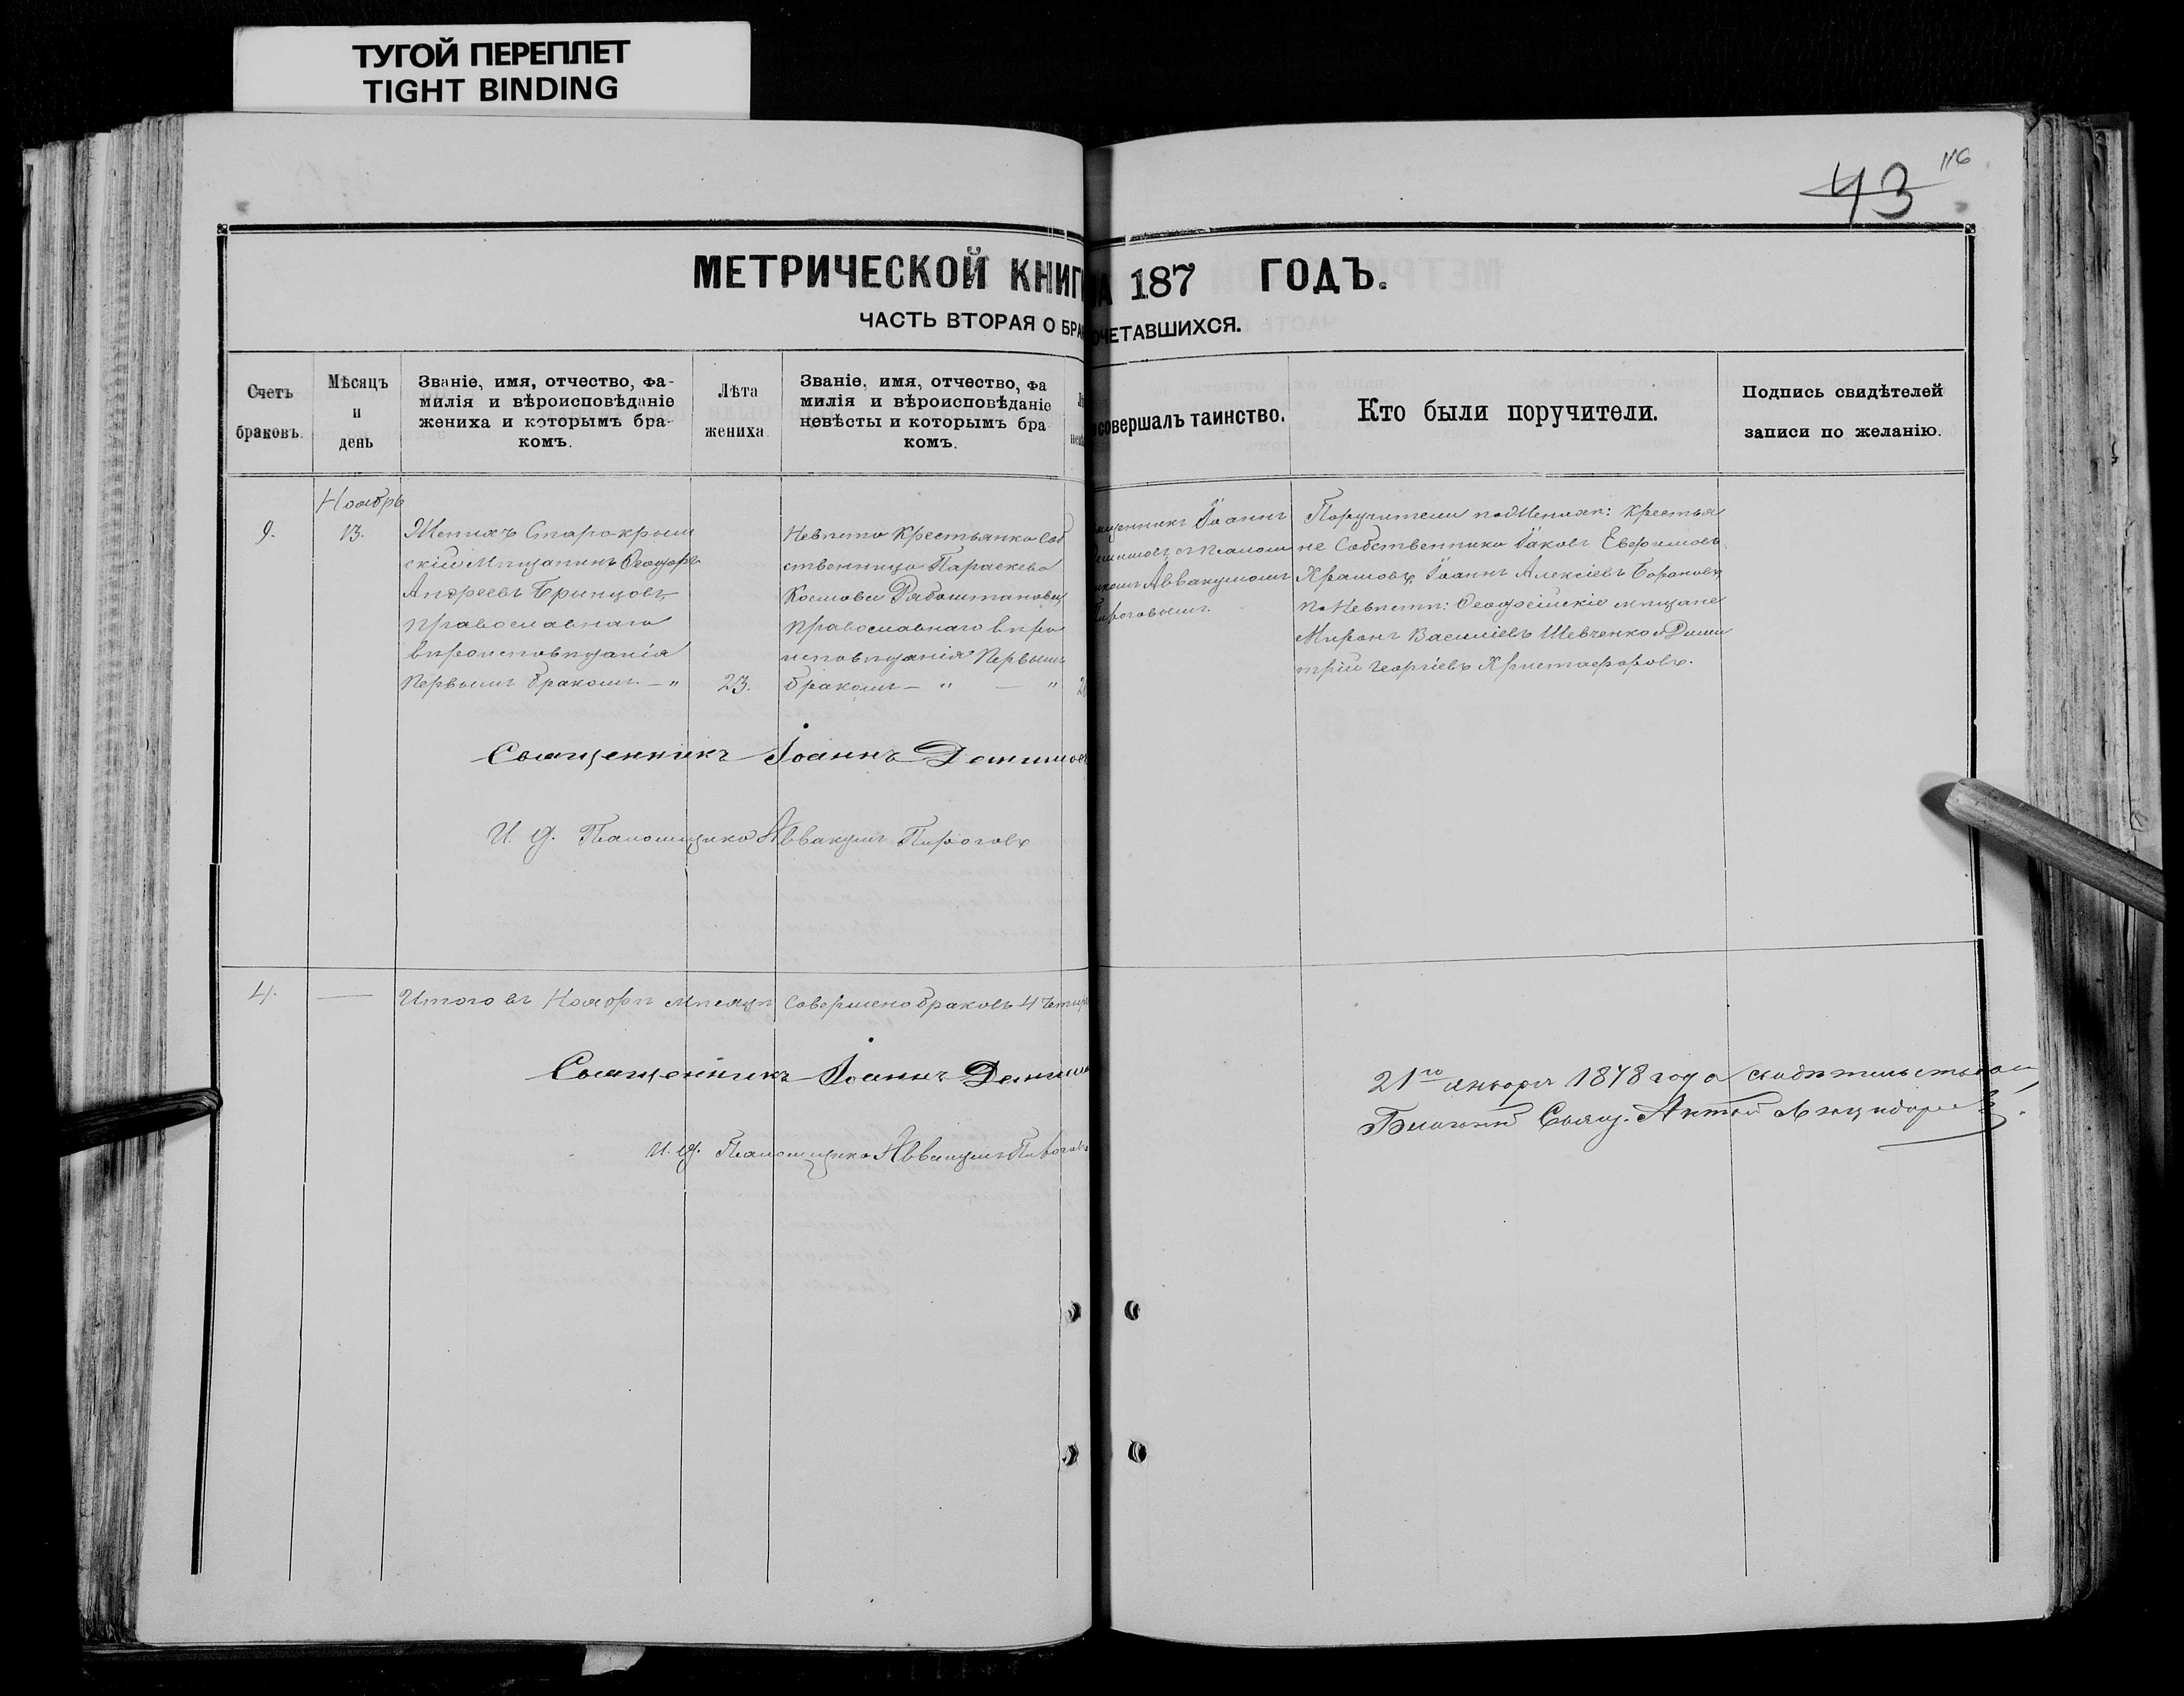 ТУГОЙ ПЕРЕПЛЕТ
TIGHT BINDING
116
43
МЕТРИЧЕСКОЙ КНИГ
НА 187 ГОДЪ.
ЧАСТЬ ВТОРАЯ О БРАК
ОЧЕТАВШИХСЯ.
Счетъ
браковъ.
Мѣсяцъ
и
день
Званіе, имя, отчество, фа-
милія и вѣроисповѣданіе
жениха и которымъ бра-
комъ.
Лѣта
жениха
Званіе, имя, отчество, фа
милія и вѣроисповѣданіе
невѣсты и которымъ бра
комъ.
совершалъ таинство.
Кто были поручители.
Подпись свидѣтелей
записи по желанію.
9.
Ноябрь
13.
Женихъ Старокрым
скій Мѣщанинъ Ѳеодоръ
Андреевъ Бринцовъ
православнаго
вѣроисповѣданія
Первымъ бракомъ. — "
23.
Невѣста Крестьянка Соб
ственница Параскева
Космова Рабоштанова
православнаго вѣро
исповѣданія Первымъ
бракомъ — " — "
2
щенникъ Іоаннъ
Демимовъ съ Псалом
щикомъ Аввакумомъ
Пироговымъ.
Поручители по Женихѣ: Крестья
не Собственники Іаковъ Евфимовъ
Храмовъ, Іоаннъ Алексіевъ Бораковъ,
по Невѣстѣ: Ѳеодосійскіе мѣщане
Миронъ Василіевъ Шевченко и Дими
трій Георгіевъ Христофоровъ.
Священникъ Іоаннъ
И. д. Псаломщика Аввакумъ Пироговъ
4. — Итого въ Ноябрѣ мѣсяцѣ Совершено браковъ 4 Четыре
Священникъ Іоаннъ
И. д. Псаломщика Аввакумъ Пироговъ
21го января 1878 года свидѣтельствовалъ
Свящ.